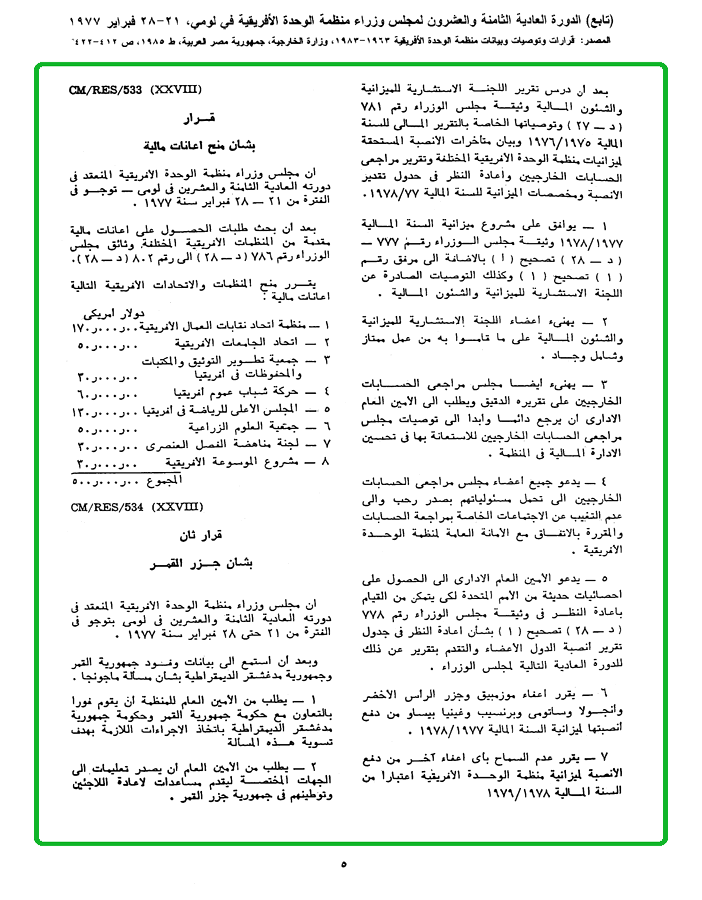 (تابع) الدورة العادية الثامنة والعشرون لمجلس وزراء منظمة الوحدة الأفريقية في لومي، ٢١-٢٨ فبراير ١٩٧٧
المصدر: قرارات وتوصيات وبيانات منظمة الوحدة الأفريقية ١٩٦٣-١٩٨٣، وزارة الخارجية، جمهورية مصر العربية، ط ١٩٨٥، ص ٤١٢-٤٢٢"
بعد أن درس تقرير اللجنة الاستشارية للميزانية
والشئون المالية وثيقة مجلس الوزراء رقم ٧٨١
( د — ٢٧ ) وتوصياتها الخاصة بالتقرير المالى للسنة
المالية ١٩٧٦/١٩٧٥ وبيان متأخرات الأنصبة المستحقة
لميزانيات منظمة الوحدة الأفريقية المختلفة وتقرير مراجعى
الحسابات الخارجيين واعادة النظر فى جدول تقدير
الأنصبة ومخصصات الميزانية للسنة المالية ١٩٧٨/٧٧.
١ — يوافق على مشروع ميزانية السنة المالية
١٩٧٨/١٩٧٧ وثيقة مجلس الوزراء رقم ٧٧٧ —
( د — ٢٨ ) تصحيح ( ١ ) بالاضافة الى مرفق رقم
( ١ ) تصحيح ( ١ ) وكذلك التوصيات الصادرة عن
اللجنة الاستشارية للميزانية والشئون المالية .
٢ — يهنىء أعضاء اللجنة الاستشارية للميزانية
والشئون المالية على ما قاموا به من عمل ممتاز
وشامل وجاد .
٣ — يهنىء أيضا مجلس مراجعى الحسابات
الخارجيين على تقريره الدقيق ويطلب الى الأمين العام
الادارى أن يرجع دائما وأبدا الى توصيات مجلس
مراجعى الحسابات الخارجيين للاستعانة بها فى تحسين
الادارة المالية فى المنظمة .
٤ — يدعو جميع أعضاء مجلس مراجعى الحسابات
الخارجيين الى تحمل مسئولياتهم بصدر رحب والى
عدم التغيب عن الاجتماعات الخاصة بمراجعة الحسابات
والمقررة بالاتفاق مع الأمانة العامة لمنظمة الوحدة
الأفريقية .
٥ — يدعو الأمين العام الادارى الى الحصول على
احصائيات حديثة من الأمم المتحدة لكى يتمكن من القيام
باعادة النظر فى وثيقة مجلس الوزراء رقم ٧٧٨
( د — ٢٨ ) تصحيح ( ١ ) بشأن اعادة النظر فى جدول
تقرير أنصبة الدول الأعضاء والتقدم بتقرير عن ذلك
للدورة العادية التالية لمجلس الوزراء .
٦ — يقرر اعفاء موزمبيق وجزر الرأس الأخضر
وأنجولا وساوتومى وبرنسيب وغينيا بيساو من دفع
أنصبتها لميزانية السنة المالية ١٩٧٨/١٩٧٧ .
٧ — يقرر عدم السماح بأى اعفاء آخر من دفع
الأنصبة لميزانية منظمة الوحدة الأفريقية اعتبارا من
السنة المالية ١٩٧٩/١٩٧٨
CM/RES/533 (XXVIII)
قرار
بشأن منح اعانات مالية
ان مجلس وزراء منظمة الوحدة الأفريقية المنعقد فى
دورته العادية الثامنة والعشرين فى لومى — توجو فى
الفترة من ٢١ — ٢٨ فبراير سنة ١٩٧٧ .
بعد أن بحث طلبات الحصول على اعانات مالية
مقدمة من المنظمات الأفريقية المختلفة وثائق مجلس
الوزراء رقم ٧٨٦ (د — ٢٨) الى رقم ٨٠٢ (د — ٢٨).
يقرر منح المنظمات والاتحادات الأفريقية التالية
اعانات مالية :
دولار أمريكى
١ — منظمة اتحاد نقابات العمال الأفريقية ٠٠ر٠٠٠ر١٧٠
٢ — اتحاد الجامعات الأفريقية ٠٠ر٠٠٠ر٥٠
٣ — جمعية تطوير التوثيق والمكتبات
والمحفوظات فى أفريقيا ٠٠ر٠٠٠ر٣٠
٤ — حركة شباب عموم أفريقيا ٠٠ر٠٠٠ر٦٠
٥ — المجلس الأعلى للرياضة فى أفريقيا ٠٠ر٠٠٠ر١٣٠
٦ — جمعية العلوم الزراعية ٠٠ر٠٠٠ر٥٠
٧ — لجنة مناهضة الفصل العنصرى ٠٠ر٠٠٠ر٣٠
٨ — مشروع الموسوعة الأفريقية ٠٠ر٠٠٠ر٣٠
المجموع ٠٠ر٠٠٠ر٥٠٠
CM/RES/534 (XXVIII)
قرار ثان
بشأن جزر القمر
ان مجلس وزراء منظمة الوحدة الأفريقية المنعقد فى
دورته العادية الثامنة والعشرين فى لومى بتوجو فى
الفترة من ٢١ حتى ٢٨ فبراير سنة ١٩٧٧ .
وبعد أن استمع الى بيانات وفود جمهورية القمر
وجمهورية مدغشقر الديمقراطية بشأن مسألة ماجونجا .
١ — يطلب من الأمين العام للمنظمة أن يقوم فورا
بالتعاون مع حكومة جمهورية القمر وحكومة جمهورية
مدغشقر الديمقراطية باتخاذ الاجراءات اللازمة بهدف
تسوية هذه المسألة
٢ — يطلب من الأمين العام أن يصدر تعليمات الى
الجهات المختصة ليقدم مساعدات لاعادة اللاجئين
وتوطينهم فى جمهورية جزر القمر .
٥